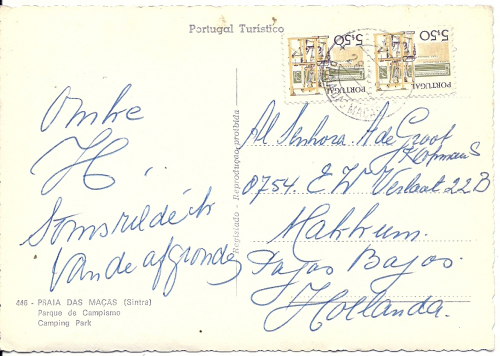 Portugal Turístico
5,50
PORTUGAL
5,50
PORTUGAL
Omke
H.
Soms wilde ik
Van de afgronde
446 - PRAIA DAS MAÇAS (Sintra)
Parque de Campismo
Camping Park
Registado - Reprodução proibida
Al Senhora A de Groot
Kopmans
0754. E W Verlaat 22B
Makkum.
Pajas Bajos.
Hollanda.